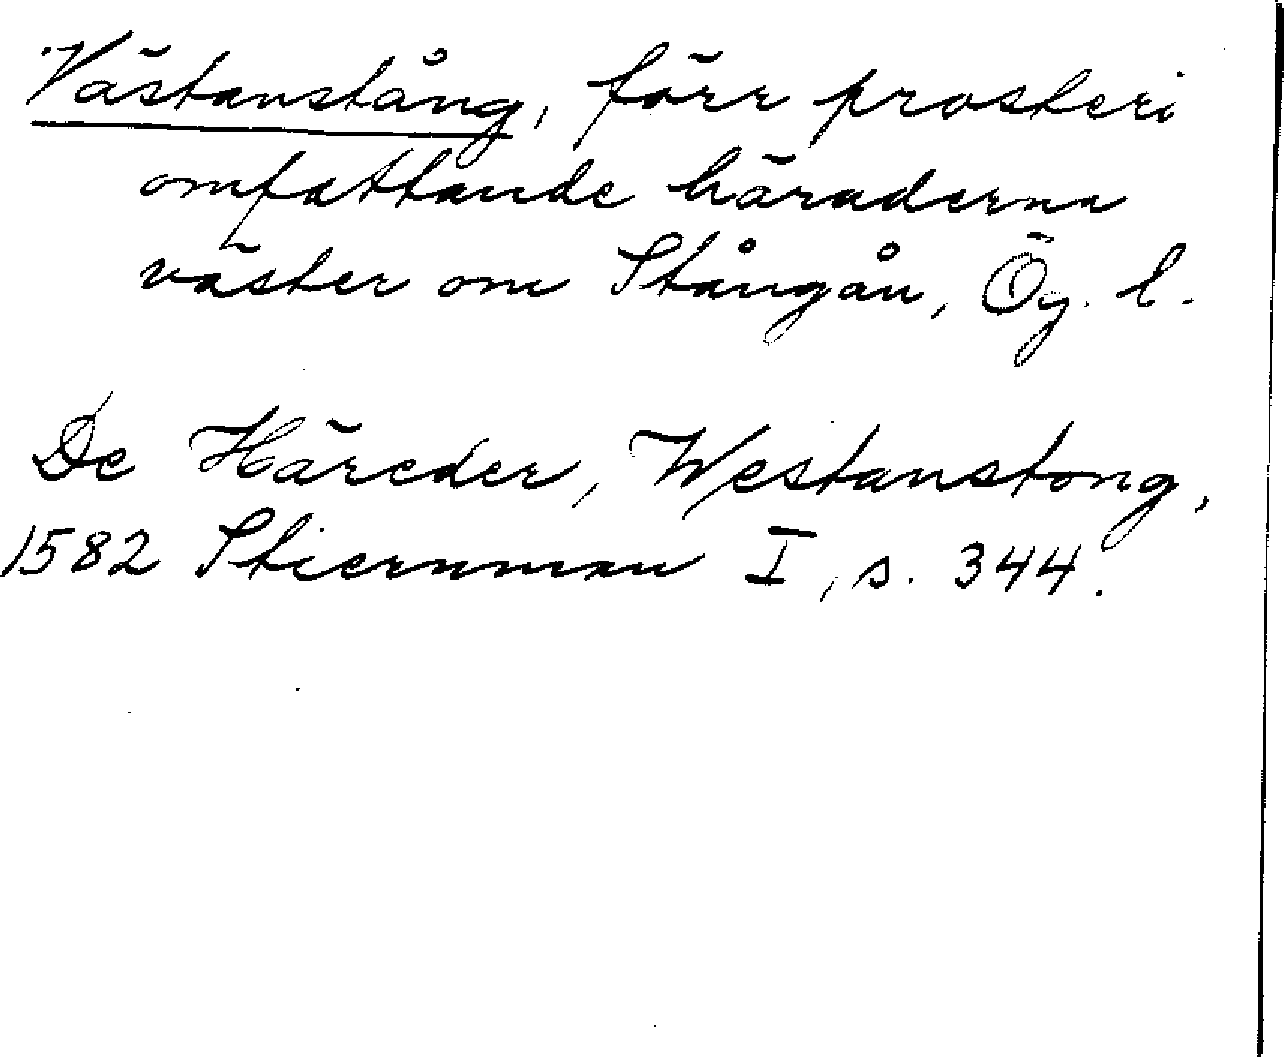 Västanstång, förr prosteri
omfattande häraderna
väster om Stångån, Ög. l.
De Häreder, Westanstong,
1582 Stiernman I, s. 344.